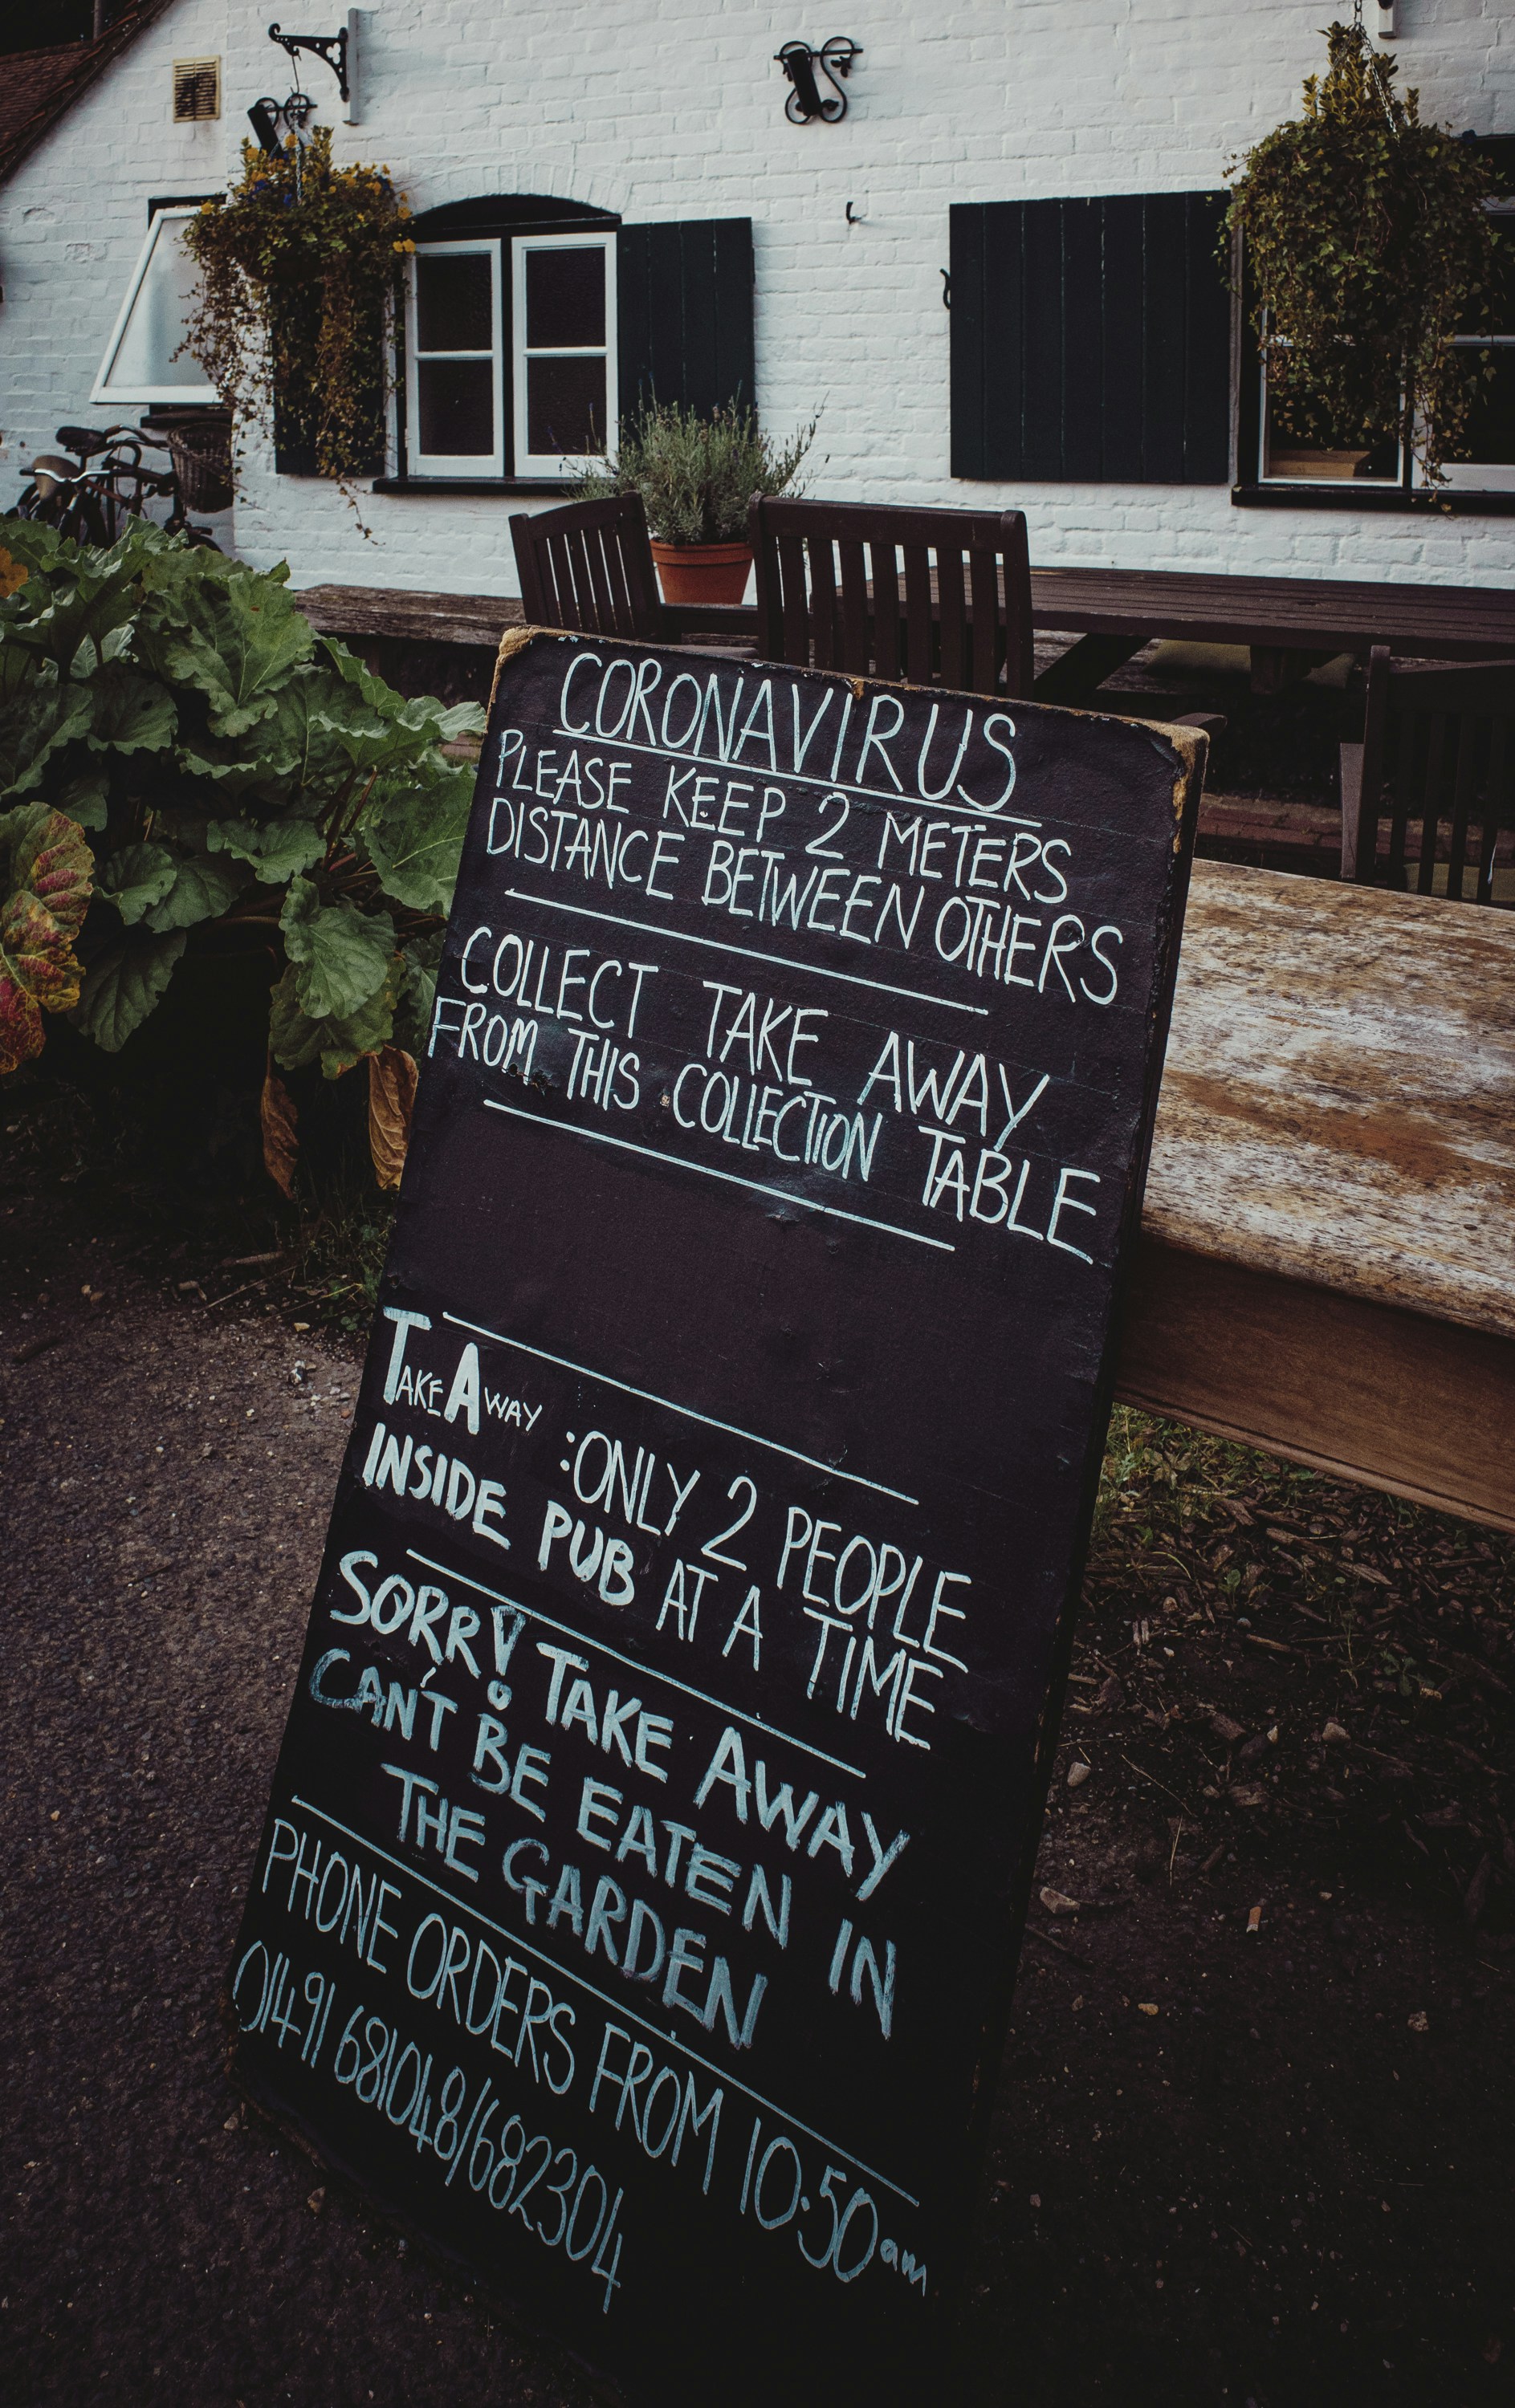 CORONAVIRUS
PLEASE KEEP 2 METERS
DISTANCE BETWEEN OTHERS
COLLECT TAKE AWAY
FROM THIS COLLECTION TABLE
TAKE AWAY : ONLY 2 PEOPLE
INSIDE PUB AT A TIME
SORRY! TAKE AWAY
CAN'T BE EATEN IN
THE GARDEN
PHONE ORDERS FROM 10.50am
01491 681048/682304